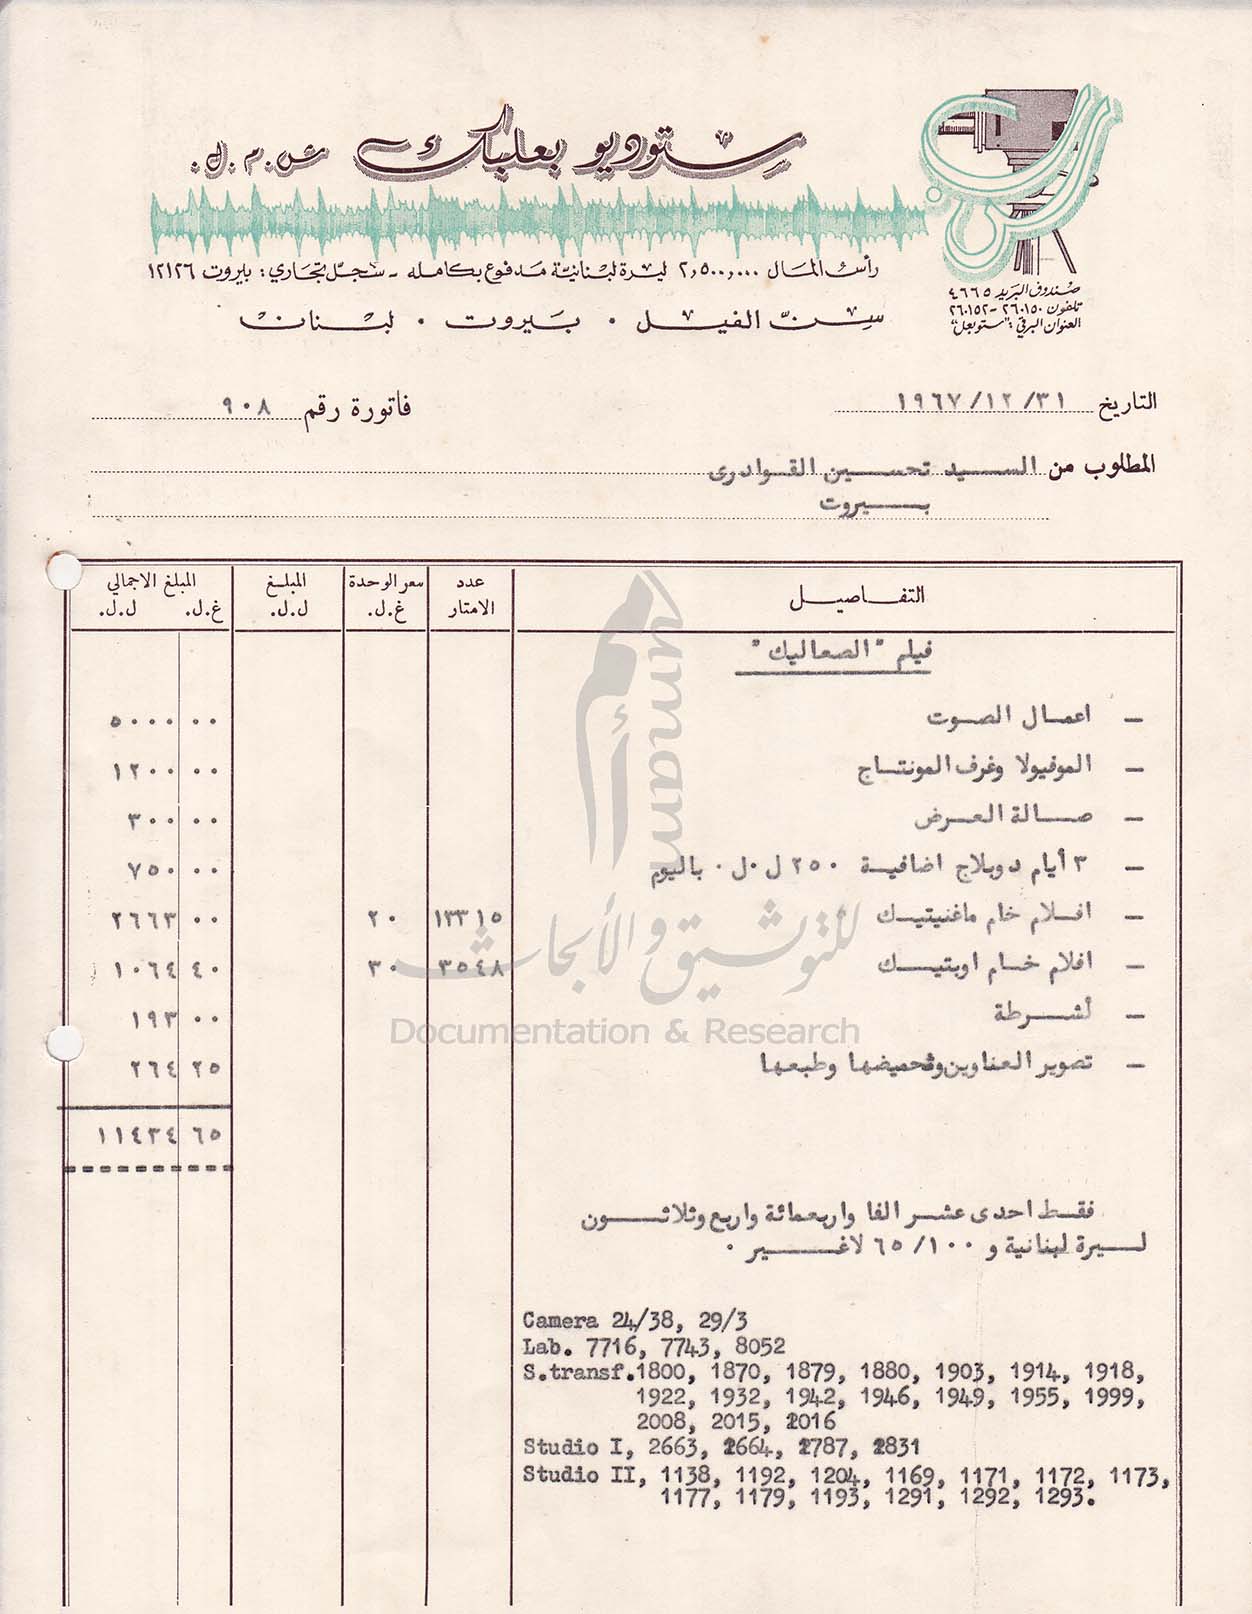 ستوديو بعلبك ش.م.ل.
رأس المال ٢,٥٠٠,٠٠٠ ليرة لبنانيّة مدفوع بكامله - سجلّ تجاري: بيروت ١٢١٢٦
سنّ الفيل . بيروت . لبنان
صندوق البريد ٤٦٦٥
تلفون ٢٦٠١٥٠-٢٦٠١٥٢
العنوان البرقي: "ستوبعل"
التاريخ ١٩٦٧/١٢/٣١
فاتورة رقم ٩٠٨
المطلوب من السيد تحسين القوادرى
بيروت
التفاصيل عدد الامتار سعر الوحدة غ.ل. المبلغ ل.ل. المبلغ الاجمالي غ.ل. ل.ل.
فيلم "الصعاليك"
– اعمال الصوت ٥٠٠٠ ٠٠
– الموفيولا وغرف المونتاج ١٢٠٠ ٠٠
– صالة العرض ٣٠٠ ٠٠
– ٣ أيام دوبلاج اضافية ٢٥٠ ل.ل. باليوم ٧٥٠ ٠٠
– افلام خام ماغنيتيك ١٣٣١٥ ٢٠ ٢٦٦٣ ٠٠
– افلام خام اوبتيك ٣٥٤٨ ٣٠ ١٠٦٤ ٤٠
– أشرطة ١٩٣ ٠٠
– تصوير العناوين وتحميضها وطبعها ٢٦٤ ٢٥
١١٤٣٤ ٦٥
فقط احدى عشر الفا واربعمائة واربع وثلاثون
ليرة لبنانية و ٦٥/١٠٠ لاغير .
Camera 24/38, 29/3
Lab. 7716, 7743, 8052
S.transf.1800, 1870, 1879, 1880, 1903, 1914, 1918,
1922, 1932, 1942, 1946, 1949, 1955, 1999,
2008, 2015, 2016
Studio I, 2663, 2664, 2787, 2831
Studio II, 1138, 1192, 1204, 1169, 1171, 1172, 1173,
1177, 1179, 1193, 1291, 1292, 1293.
أمم
umam
للتوثيق والأبحاث
Documentation & Research